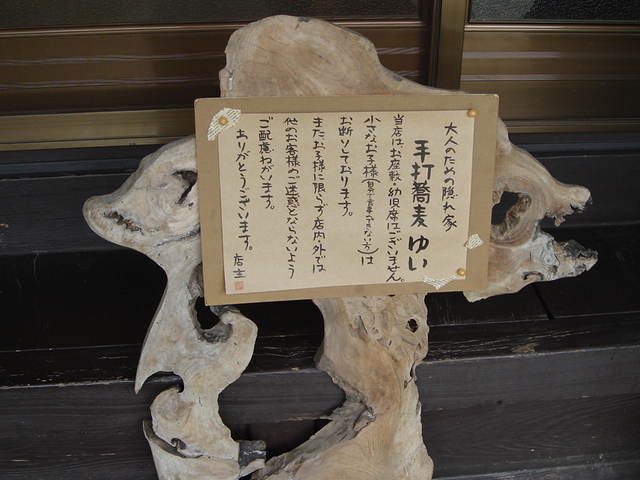 大人のための隠れ家
手打蕎麦 ゆい
当店は、お座敷・幼児席はございません。
小さなお子様(夏子食事できない方)は
お断りしております。
また、お子様に限らず店内・外では
他のお客様のご迷惑とならないよう
ご配慮ねがいます。
ありがとうございます。
店主